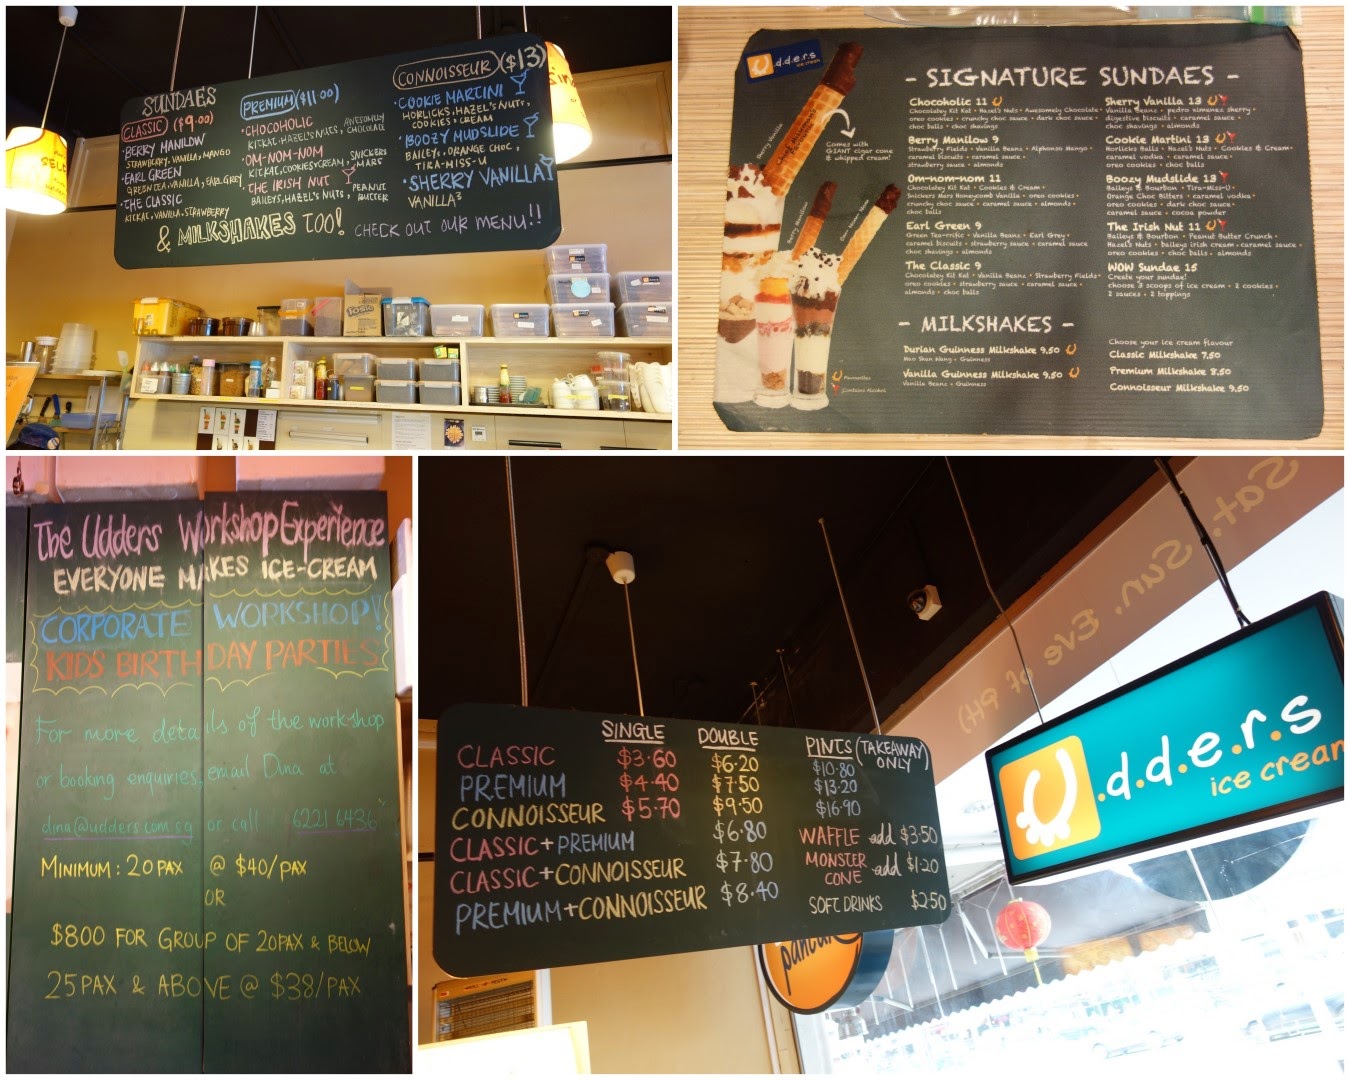 SUNDAES
CLASSIC ($9.00)
BERRY MANILOW
STRAWBERRY, VANILLA, MANGO
EARL GREEN
GREEN TEA, VANILLA, EARL GREY
• THE CLASSIC
KITKAT, VANILLA, STRAWBERRY
PREMIUM ($11.00)
• CHOCOHOLIC
KITKAT, HAZEL'S NUTS, AWESOMELY CHOCOLATE
OM-NOM-NOM
KITKAT, COOKIES & CREAM, SNICKERS MARS
• THE IRISH NUT
BAILEYS, HAZEL'S NUTS, PEANUT BUTTER
CONNOISSEUR ($13)
• COOKIE MARTINI
HORLICKS, HAZEL'S NUTS,
COOKIES & CREAM
• BOOZY MUDSLIDE
BAILEY, ORANGE CHOC,
TIRA-MISS-U
• SHERRY VANILLA
VANILLA³
& MILKSHAKES TOO! CHECK OUT OUR MENU!!
U.d.d.e.r.s
ice cream
- SIGNATURE SUNDAES -
Comes with
GIANT cigar cone
& whipped cream!
Chocoholic 11
Chocolatey Kit Kat • Hazel's Nuts • Awesomely Chocolate •
oreo cookies • crunchy choc sauce • dark choc sauce •
choc balls • choc shavings
Berry Manilow 9
Strawberry Fields • Vanilla Beans • Alphonso Mango •
caramel biscuits • caramel sauce •
strawberry sauce • almonds
Om-nom-nom 11
Chocolatey Kit Kat • Cookies & Cream •
Snickers Mars Honeycomb Vanilla • oreo cookies •
crunchy choc sauce • caramel sauce • almonds •
choc balls
Earl Green 9
Green Tea-rrific • Vanilla Beans • Earl Grey •
caramel biscuits • strawberry sauce • caramel sauce •
choc shavings • almonds
The Classic 9
Chocolatey Kit Kat • Vanilla Beans • Strawberry Fields •
oreo cookies • strawberry sauce • caramel sauce •
almonds • choc balls
Sherry Vanilla 13
Vanilla Beans • pedro ximenez sherry •
digestive biscuits • caramel sauce •
choc shavings • almonds
Cookie Martini 13
Horlicks Balls • Hazel's Nuts • Cookies & Cream •
caramel vodka • caramel sauce •
oreo cookies • choc balls
Boozy Mudslide 13
Baileys & Bourbon • Tira-Miss-U •
Orange Choc Bitters • caramel vodka •
oreo cookies • dark choc sauce •
caramel sauce • cocoa powder
The Irish Nut 11
Baileys & Bourbon • Peanut Butter Crunch •
Hazel's Nuts • baileys irish cream • caramel sauce •
oreo cookies • choc balls • almonds
WOW Sundae 15
Create your sundae!
choose 3 scoops of ice cream • 2 cookies •
2 sauces • 2 toppings
- MILKSHAKES -
Durian Guinness Milkshake 9.50
Mao Shan Wang • Guinness
Vanilla Guinness Milkshake 9.50
Vanilla Beans • Guinness
Choose your ice cream flavour
Classic Milkshake 7.50
Premium Milkshake 8.50
Connoisseur Milkshake 9.50
Favourites
Contains Alcohol
The Udders Workshop Experience
EVERYONE MAKES ICE-CREAM
CORPORATE WORKSHOP!
KIDS BIRTHDAY PARTIES
For more details of the workshop
or booking enquiries, email Dina at
dina@udders.com.sg or call 6221 6436
MINIMUM: 20 PAX @ $40/PAX
OR
$800 FOR GROUP OF 20PAX & BELOW
25 PAX & ABOVE @ $38/PAX
SINGLE DOUBLE PINTS (TAKEAWAY ONLY)
CLASSIC $3.60 $6.20 $10.80
PREMIUM $4.40 $7.50 $13.20
CONNOISSEUR $5.70 $9.50 $16.90
CLASSIC + PREMIUM $6.80
CLASSIC + CONNOISSEUR $7.80
PREMIUM + CONNOISSEUR $8.40
WAFFLE add $3.50
MONSTER CONE add $1.20
SOFT DRINKS $2.50
Sat, Sun, Eve of PH)
U.d.d.e.r.s
ice cream